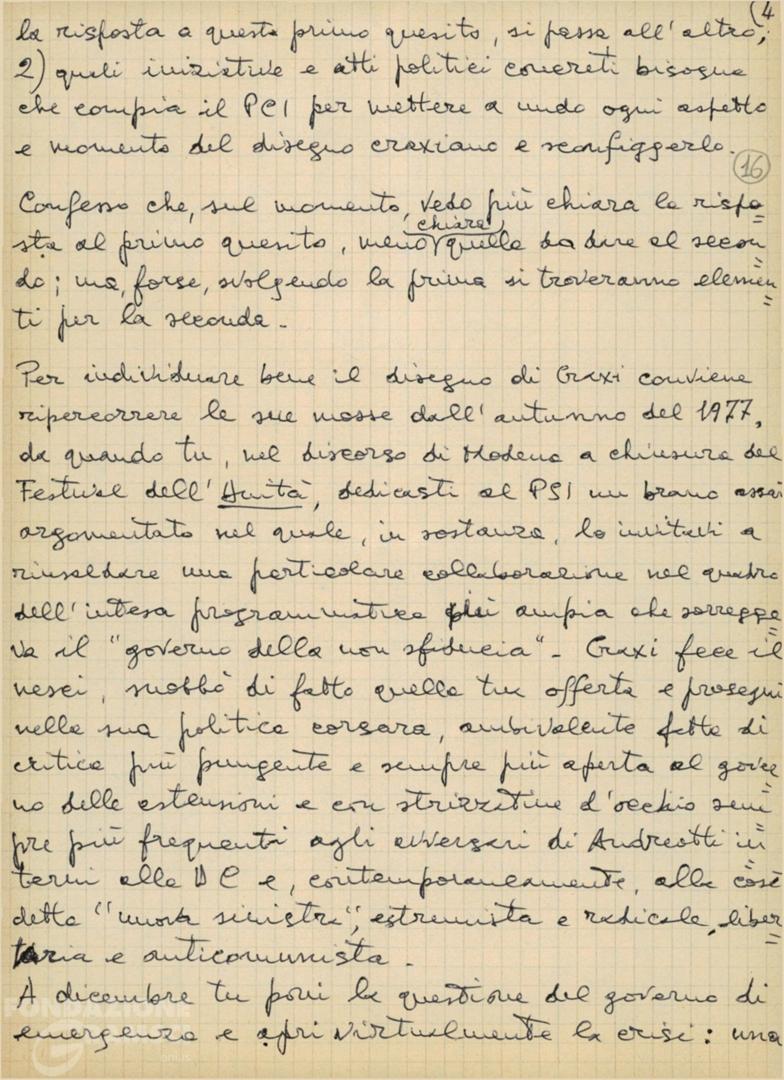 (4
la risposta a questo primo quesito, si passa all'altro;
2) quali iniziative e atti politici concreti bisogna
che compia il PCI per mettere a nudo ogni aspetto
e momento del disegno craxiano e sconfiggerlo.
16
Confesso che, sul momento, vedo più chiara la rispo=
sta al primo quesito, meno chiara quella da dare al secon=
do; ma, forse, svolgendo la prima si troveranno elemen=
ti per la seconda.
Per individuare bene il disegno di Craxi conviene
ripercorrere le sue mosse dall'autunno del 1977,
da quando tu, nel discorso di Modena a chiusura del
Festival dell'Unità, dedicasti al PSI un brano assai
argomentato nel quale, in sostanza, lo invitavi a
rinsaldare una particolare collaborazione nel quadro
dell'intesa programmatica più ampia che sorregge=
va il "governo della non sfiducia". Craxi fece il
nesci, snobbò di fatto quella tua offerta e proseguì
nella sua politica corsara, ambivalente fatta di
critica più pungente e sempre più aperta al gover=
no delle astensioni e con strizzatine d'occhio sem=
pre più frequenti agli avversari di Andreotti in=
terni alla DC e, contemporaneamente, alla cosi=
detta "nuova sinistra", estremista e radicale, liber=
taria e anticomunista.
A dicembre tu poni la questione del governo di
emergenza e apri virtualmente la crisi: una
FONDAZIONE
onlus